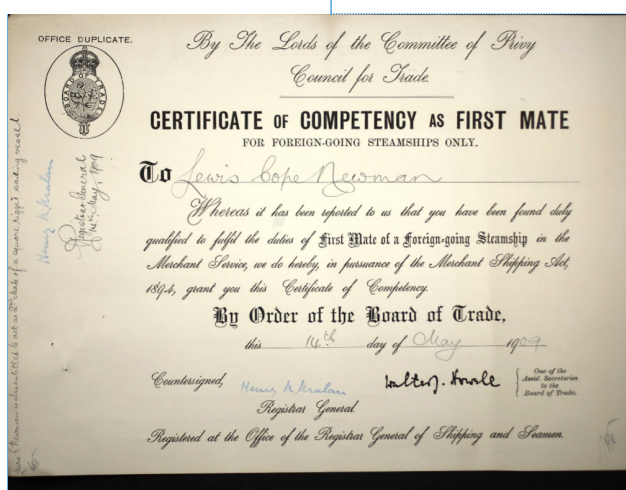 OFFICE DUPLICATE.
BOARD OF TRADE
By The Lords of the Committee of Privy
Council for Trade.
CERTIFICATE OF COMPETENCY AS FIRST MATE
FOR FOREIGN-GOING STEAMSHIPS ONLY.
To Lewis Cope Newman
Whereas it has been reported to us that you have been found duly
qualified to fulfil the duties of First Mate of a Foreign-going Steamship in the
Merchant Service, we do hereby, in pursuance of the Merchant Shipping Act,
1894, grant you this Certificate of Competency.
By Order of the Board of Trade,
this 14th day of May 1909
Countersigned,
Registrar General.
One of the
Assist. Secretaries
to the
Board of Trade.
Registered at the Office of the Registrar General of Shipping and Seamen.
Registrar General
14th May, 1909
Newman is also entitled to act as 2nd Mate of a square rigged sailing vessel.